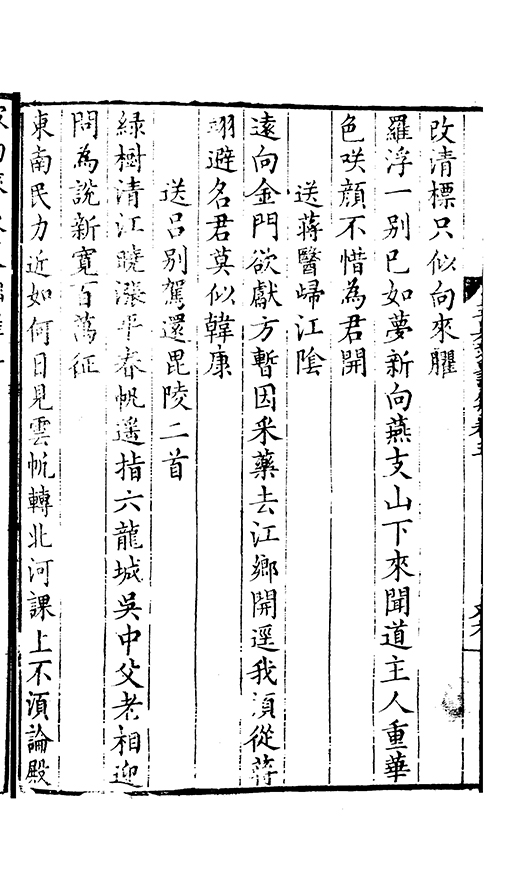 改清標只似向來臞
羅浮一別已如夢新向燕支山下來聞道主人重華
色咲顔不惜為君開
送蔣醫歸江陰
遠向金門欲獻方暫因采藥去江鄉開逕我須從蔣
翊避名君莫似韓康
送吕別駕還毘陵二首
綠樹清江曉漲平春帆遥指六龍城吳中父老相迎
問為說新寬百萬征
東南民力近如何日見雲帆轉北河課上不湏論殿